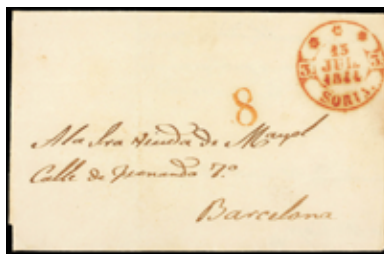 JUL.
1844
SORIA.
8
A la Sra Viuda de Mayol
Calle de Fernando 7.º
Barcelona